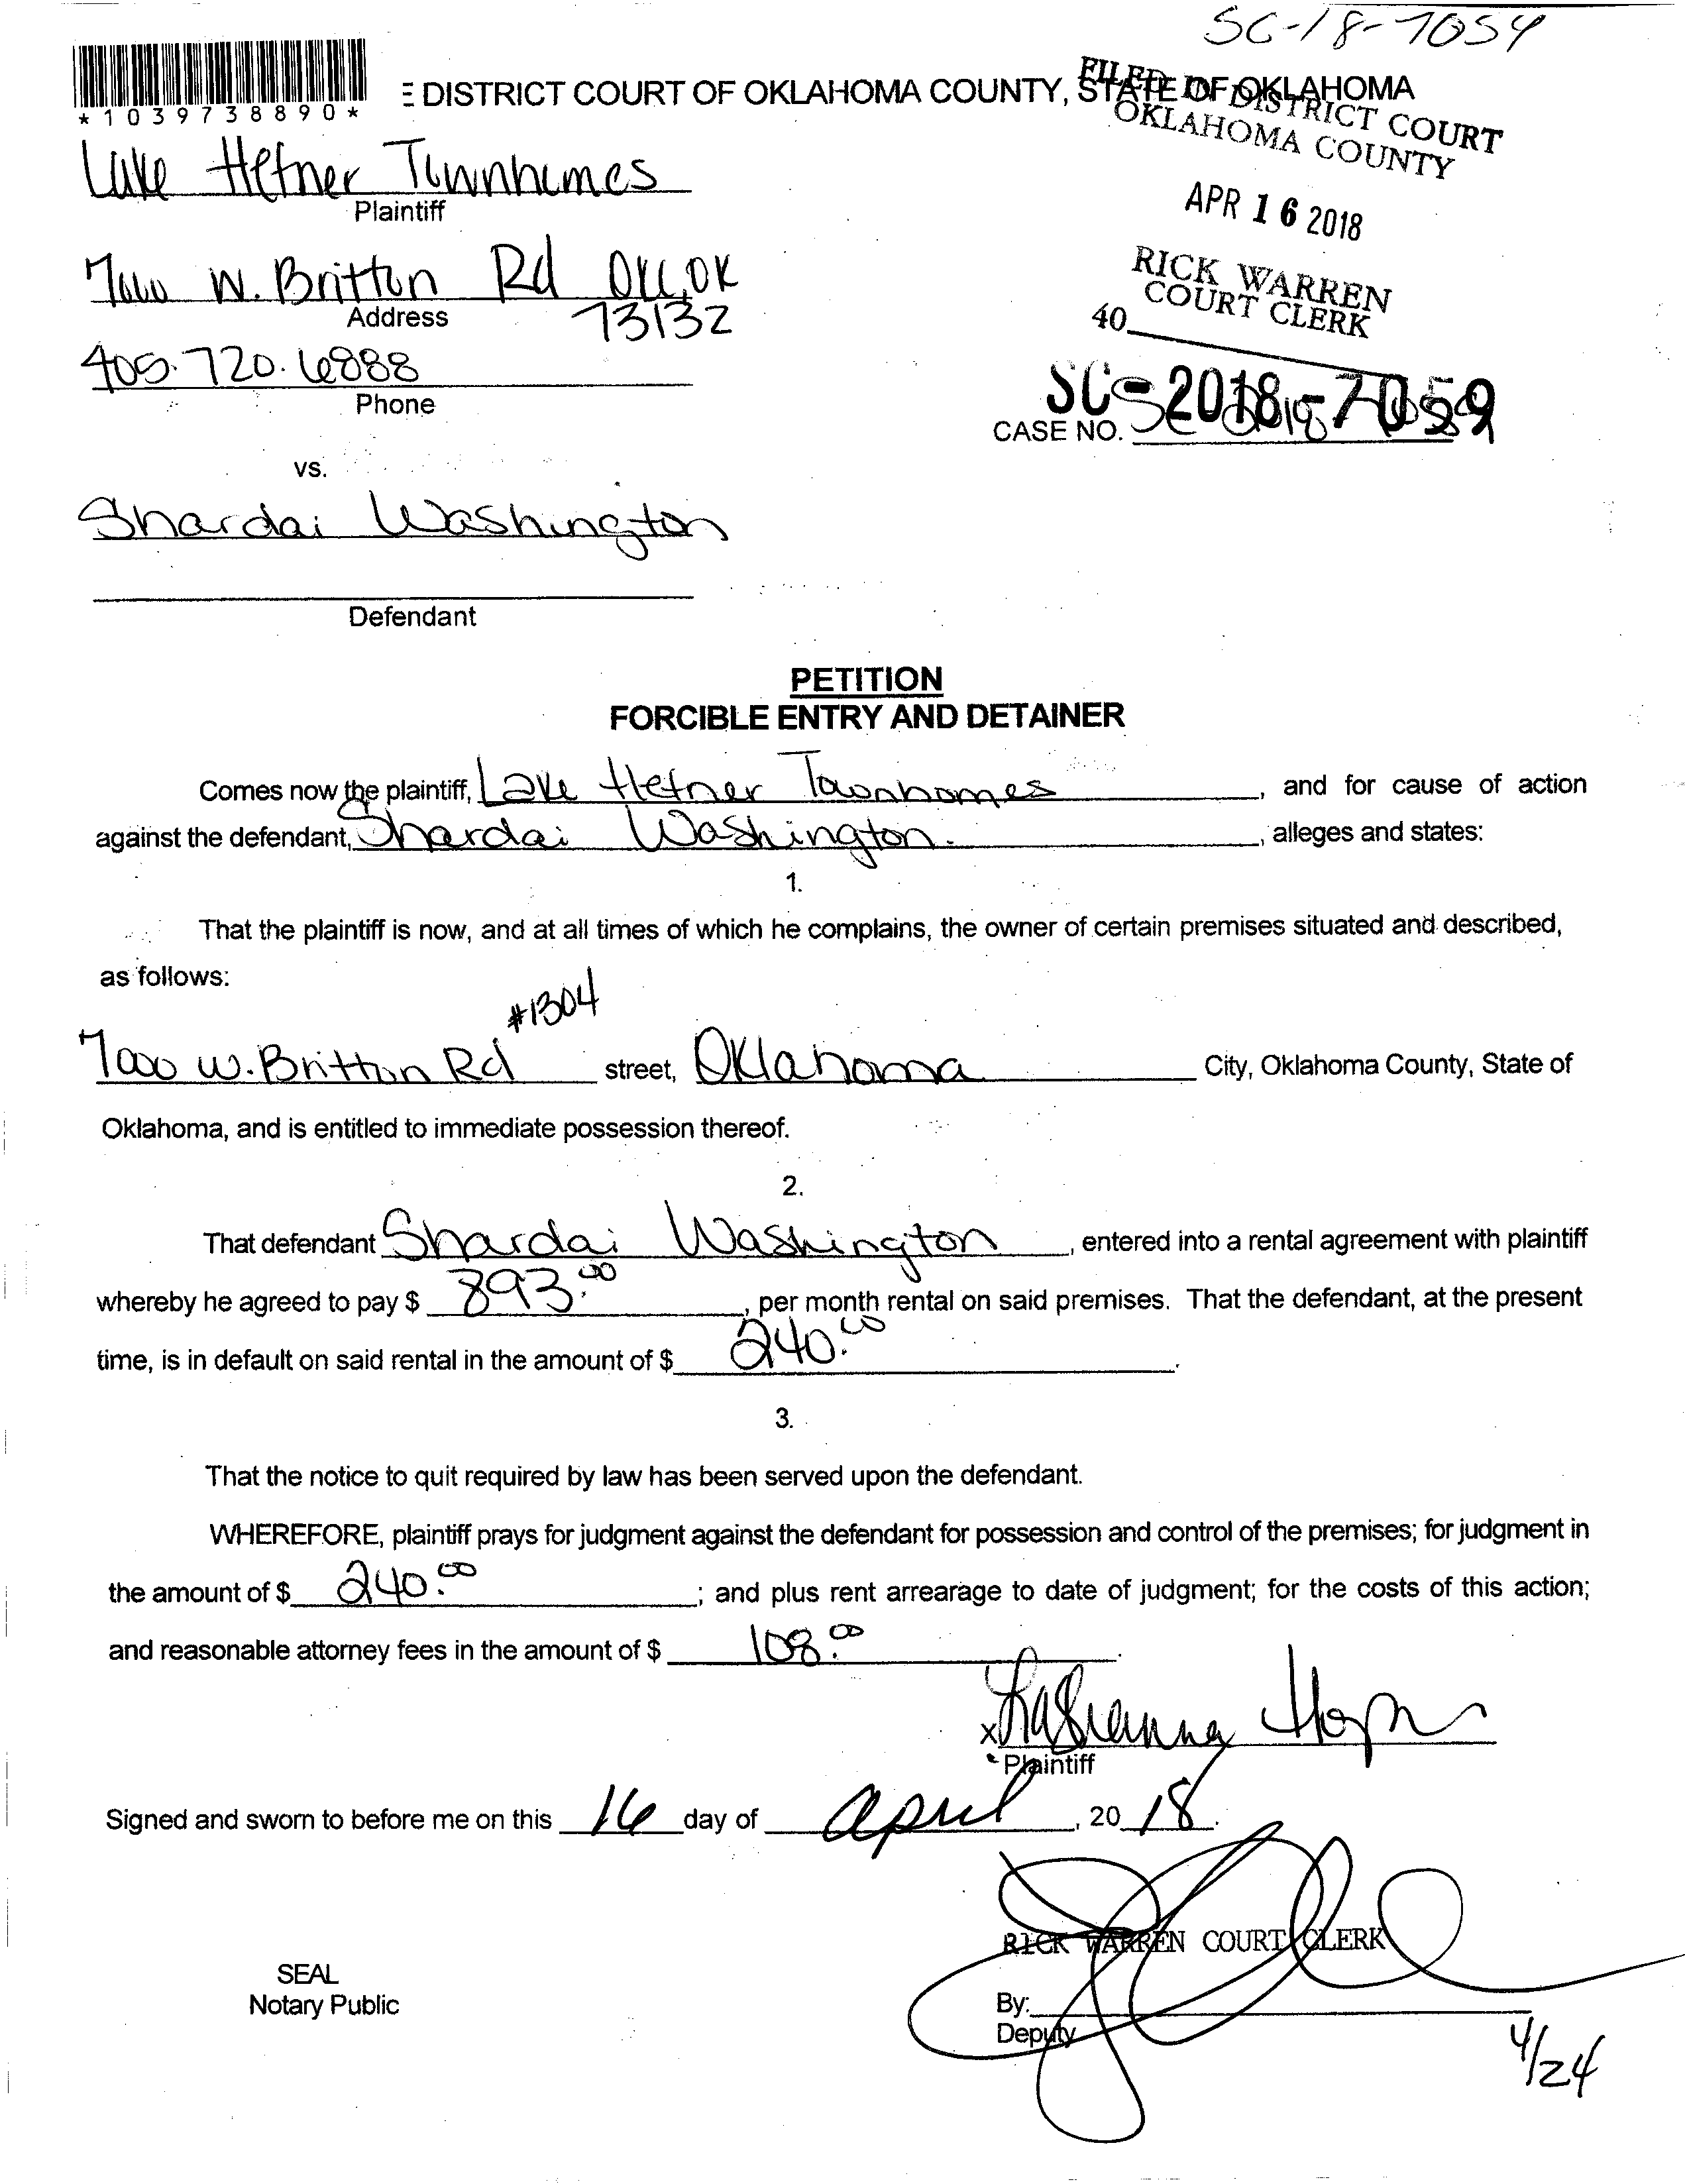 SC-18-7059
*1039738890*
E DISTRICT COURT OF OKLAHOMA COUNTY, STATE OF OKLAHOMA
FILED IN DISTRICT COURT
OKLAHOMA COUNTY
Lake Hefner Townhomes
Plaintiff
APR 16 2018
RICK WARREN
COURT CLERK
40
7000 W. Britton Rd OKC, OK
Address
73132
405.720.6888
Phone
SC-2018-7059
CASE NO.
vs.
Shardai Washington
Defendant
PETITION
FORCIBLE ENTRY AND DETAINER
Comes now the plaintiff, Lake Hefner Townhomes, and for cause of action
against the defendant, Shardai Washington., alleges and states:
1.
That the plaintiff is now, and at all times of which he complains, the owner of certain premises situated and described,
as follows:
#1304
7000 W. Britton Rd street, Oklahoma City, Oklahoma County, State of
Oklahoma, and is entitled to immediate possession thereof.
2.
That defendant Shardai Washington, entered into a rental agreement with plaintiff
whereby he agreed to pay $ 893.00, per month rental on said premises. That the defendant, at the present
time, is in default on said rental in the amount of $ 240.00.
3.
That the notice to quit required by law has been served upon the defendant.
WHEREFORE, plaintiff prays for judgment against the defendant for possession and control of the premises; for judgment in
the amount of $ 240.00; and plus rent arrearage to date of judgment; for the costs of this action;
and reasonable attorney fees in the amount of $ 108.00.
x
Plaintiff
Signed and sworn to before me on this 16 day of april, 2018.
RICK WARREN COURT CLERK
SEAL
Notary Public
By:
Deputy
4/24